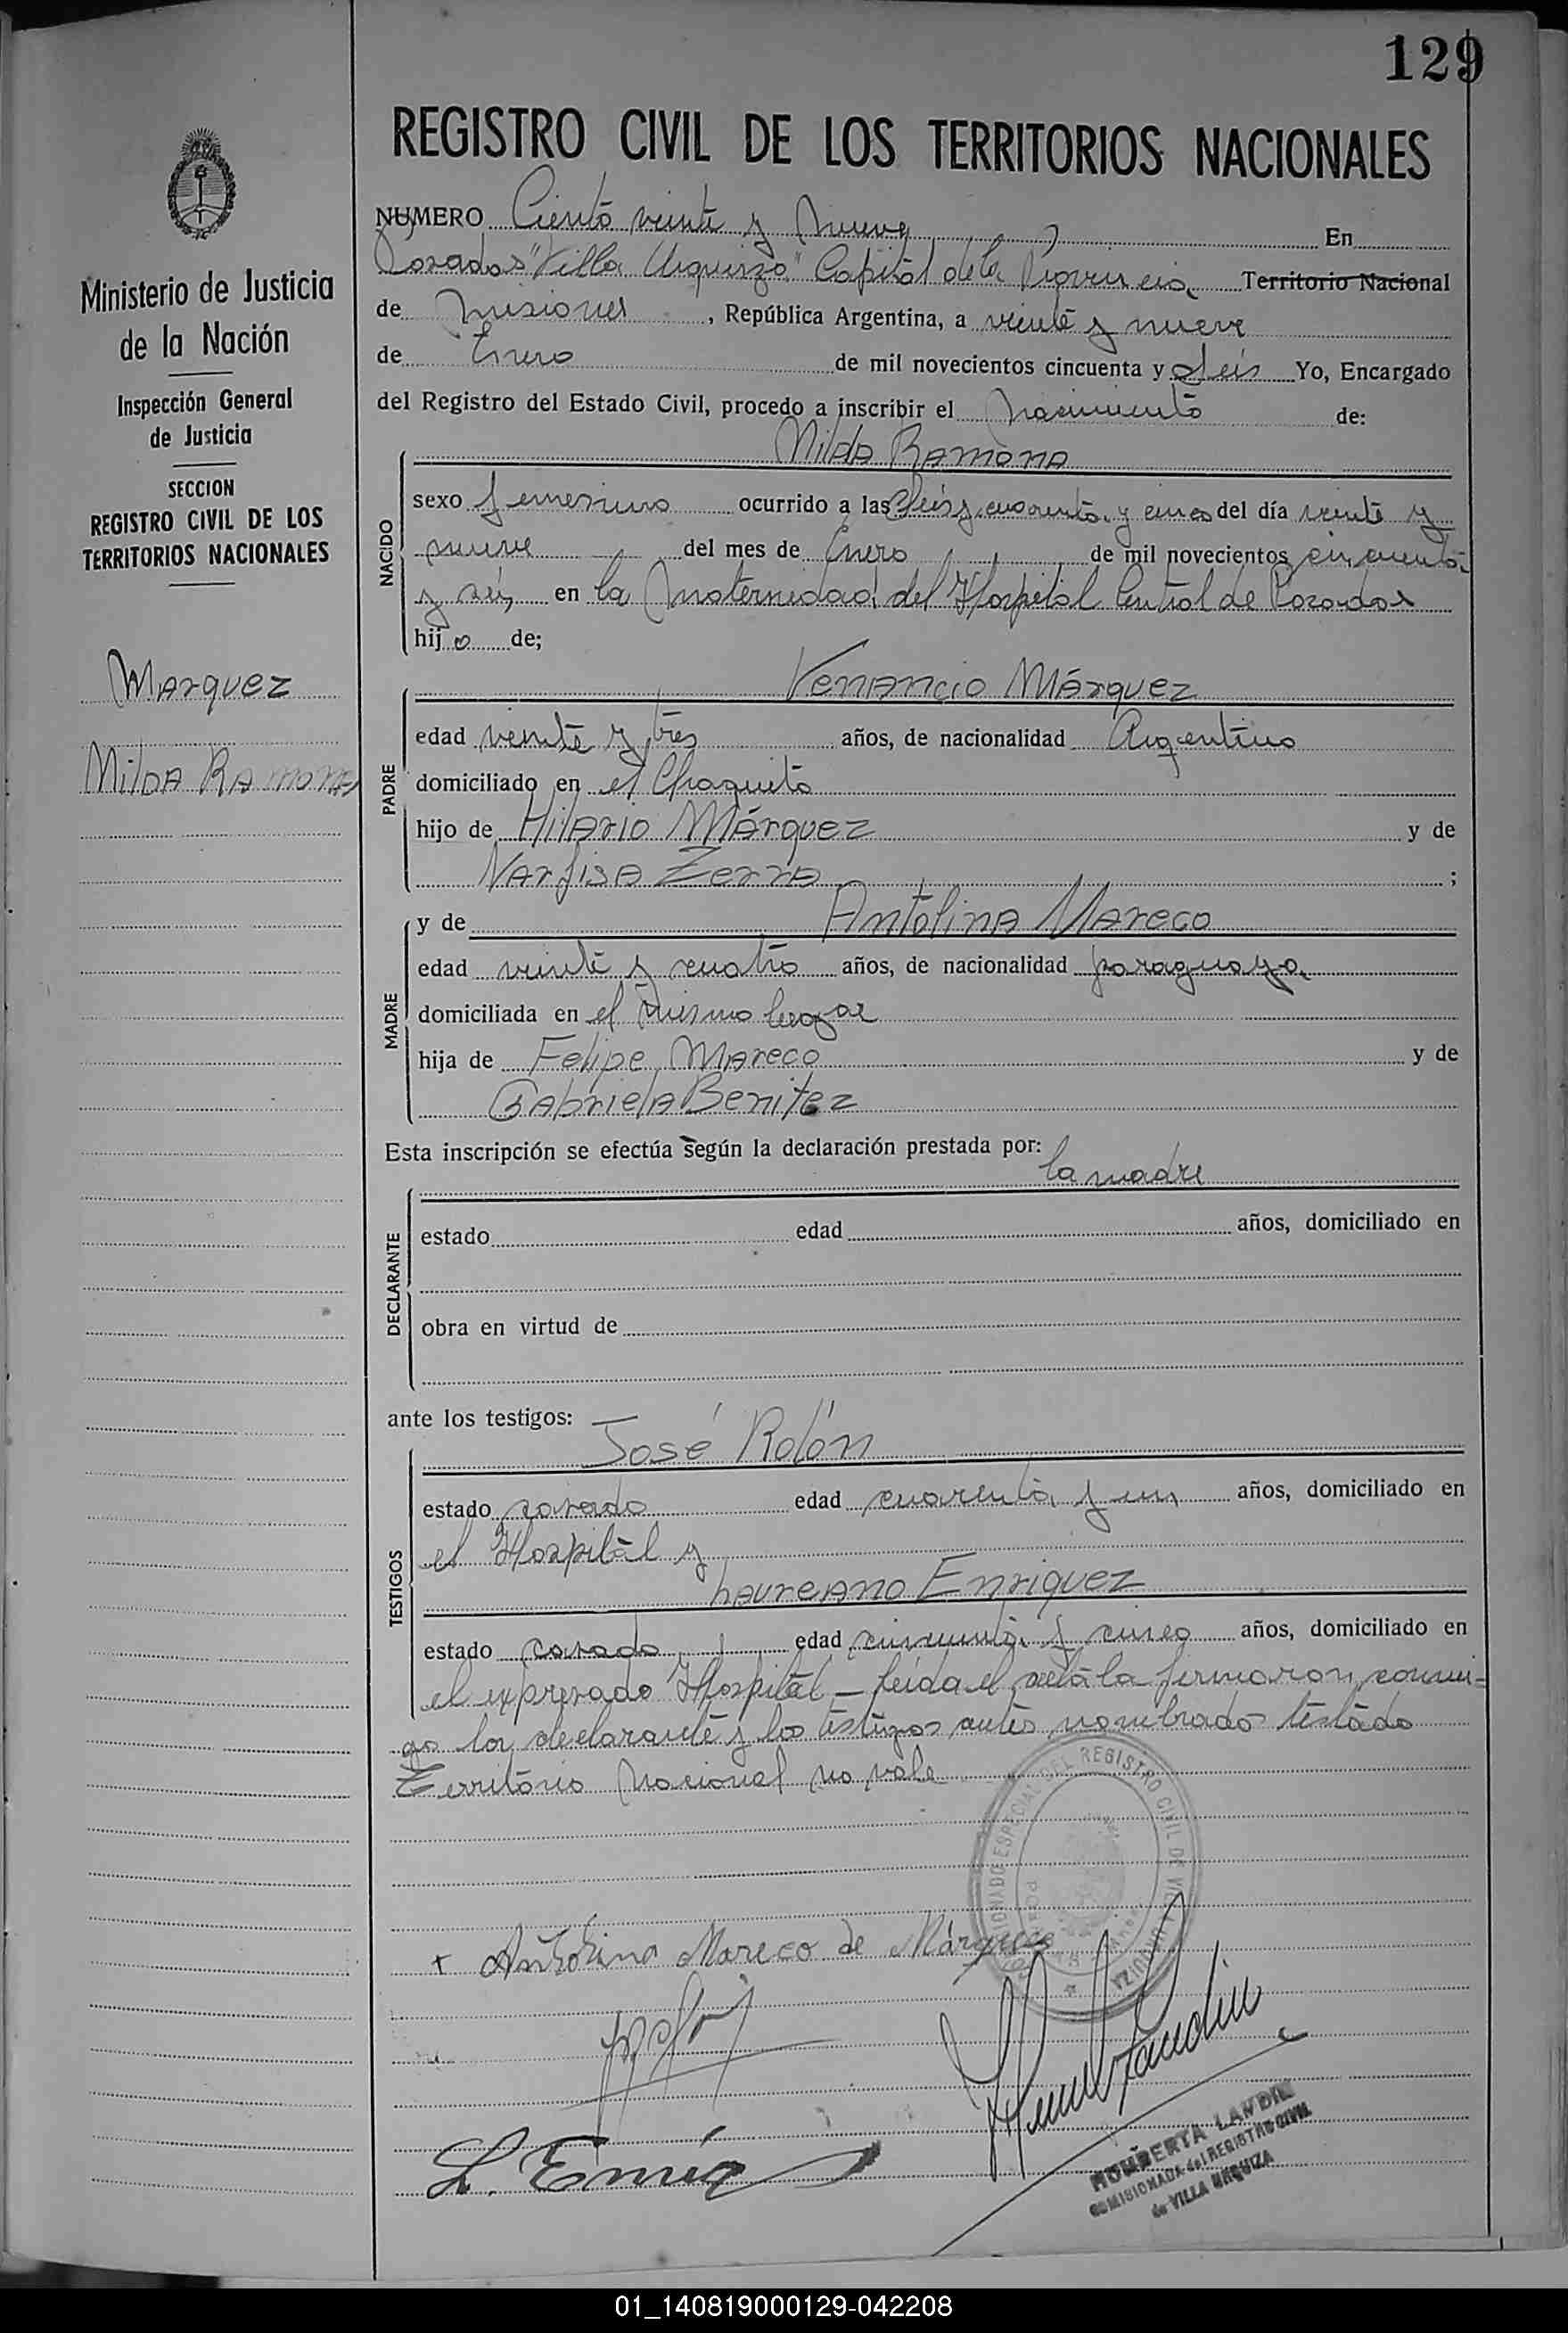 129
REGISTRO CIVIL DE LOS TERRITORIOS NACIONALES
NUMERO Ciento veinte y nueve En
Posadas "Villa Urquiza" Capital de la Provincia Territorio Nacional
de Misiones, República Argentina, a veinte y nueve
de Enero de mil novecientos cincuenta y Seis Yo, Encargado
del Registro del Estado Civil, procedo a inscribir el nacimiento de:
Ministerio de Justicia
de la Nación
Inspección General
de Justicia
SECCION
REGISTRO CIVIL DE LOS
TERRITORIOS NACIONALES
Marquez
Nilda Ramona
NACIDO
Nilda Ramona
sexo femenino ocurrido a las Seis y cuarenta y cinco del día veinte y
nueve del mes de Enero de mil novecientos cincuenta
y seis en la Maternidad del Hospital Central de Posadas
hija de;
PADRE
Venancio Márquez
edad veinte y tres años, de nacionalidad Argentino
domiciliado en el Chaquito
hijo de Hilario Márquez y de
Narfisa Zerra;
MADRE
y de Antolina Mareco
edad veinte y cuatro años, de nacionalidad paraguaya
domiciliada en el mismo lugar
hija de Felipe Mareco y de
Gabriela Benitez
Esta inscripción se efectúa según la declaración prestada por:
la madre
DECLARANTE
estado edad años, domiciliado en
obra en virtud de
ante los testigos:
TESTIGOS
José Rolón
estado casado edad cuarenta y un años, domiciliado en
el Hospital y
Laureano Enriquez
estado casado edad cincuenta y cinco años, domiciliado en
el expresado Hospital – Leida el acta la firmaron conmi=
go la declarante y los testigos antes nombrados testado
Territorio Nacional no vale
REGISTRO CIVIL DE VILLA URQUIZA
+ Antolina Mareco de Márquez
L. Enriq
HUMBERTA LANDIN
COMISIONADA del REGISTRO CIVIL
de VILLA URQUIZA
01_140819000129-042208